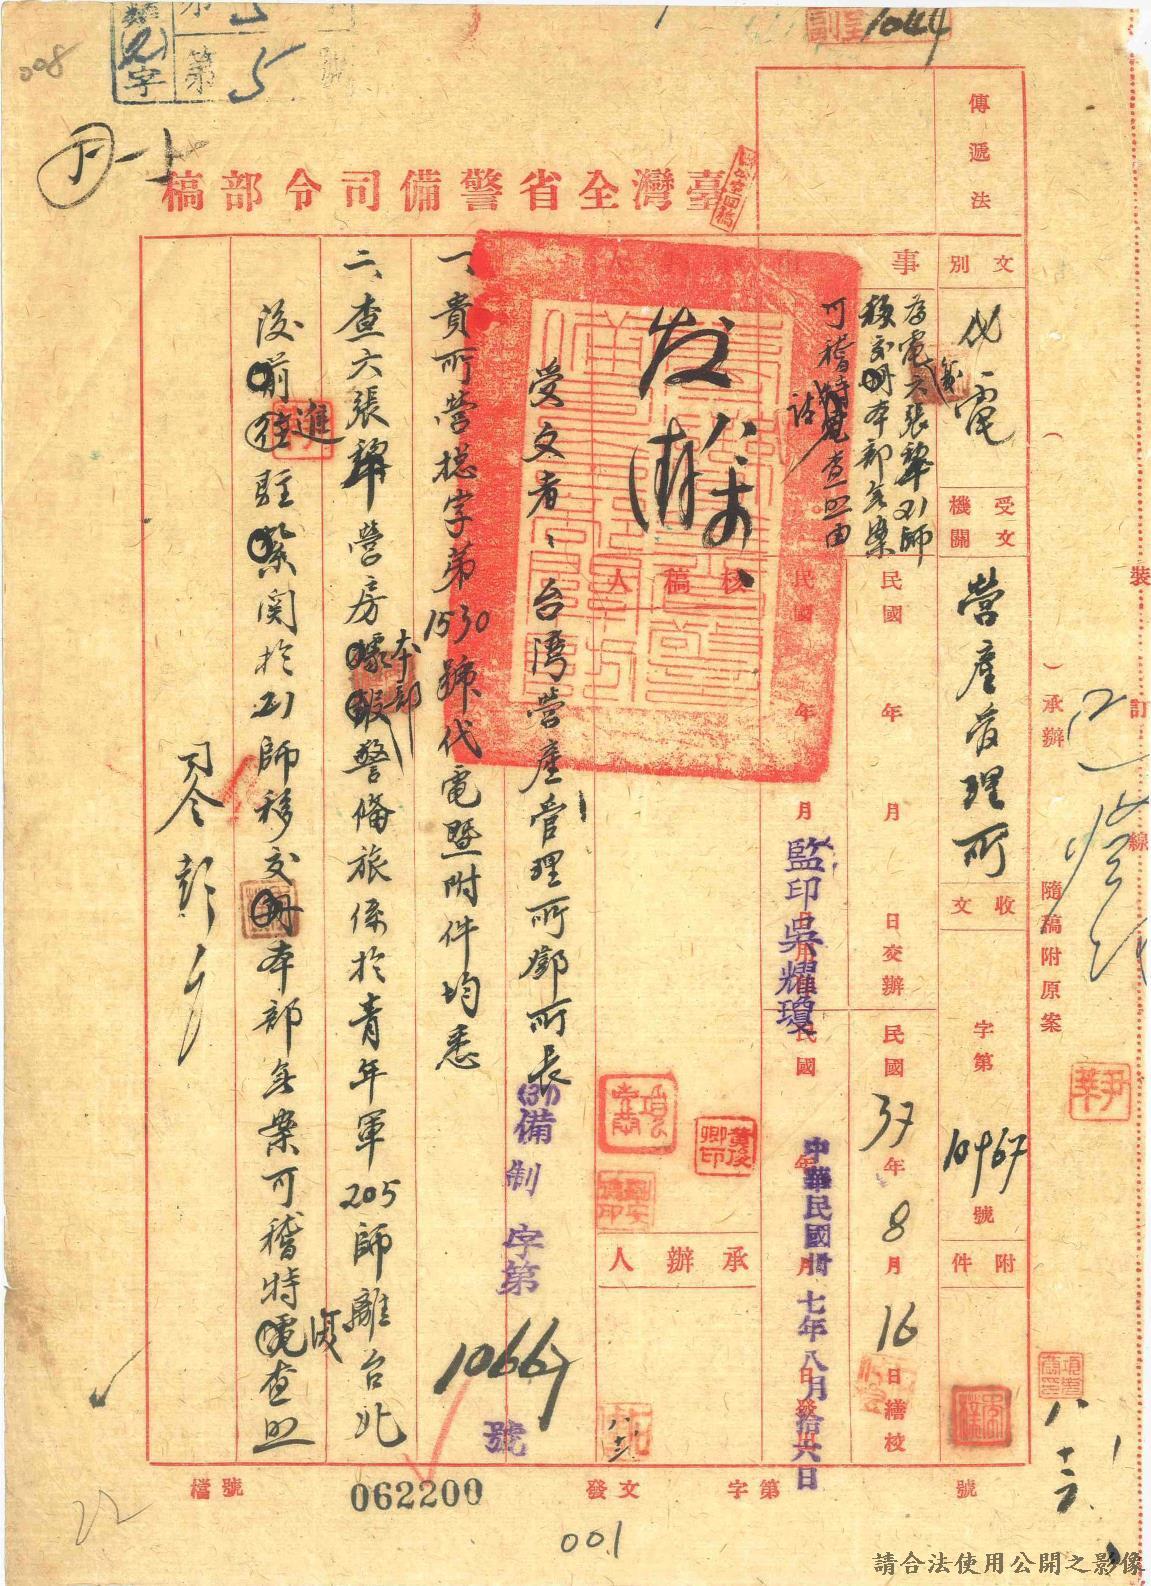 008
第5號
1044
臺灣全省警備司令部稿
傳遞法
文別
代電
受文機關
營產管理所
收文
字第10967號
附件
事
為電復六張犁21師
移交冊本部無案
可稽請查照由
民國 年 月 日交辦
民國37年8月16日繕校
民國 年 月
監印吳耀瓊
中華民國卅七年八月拾六日
核稿人
承辦人
發
受文者、台灣營產管理所鄧所長
(37)備制字第10667號
一、貴所營總字第1530號代電暨附件均悉
二、查六張犁營房本部警備旅係於青年軍205師離台北
後進駐關於21師移交冊本部無案可稽特復查照
司令彭
裝訂線
承辦
隨稿附原案
八、十六、
檔號
062200
發文
字第
號
001
22
請合法使用公開之影像